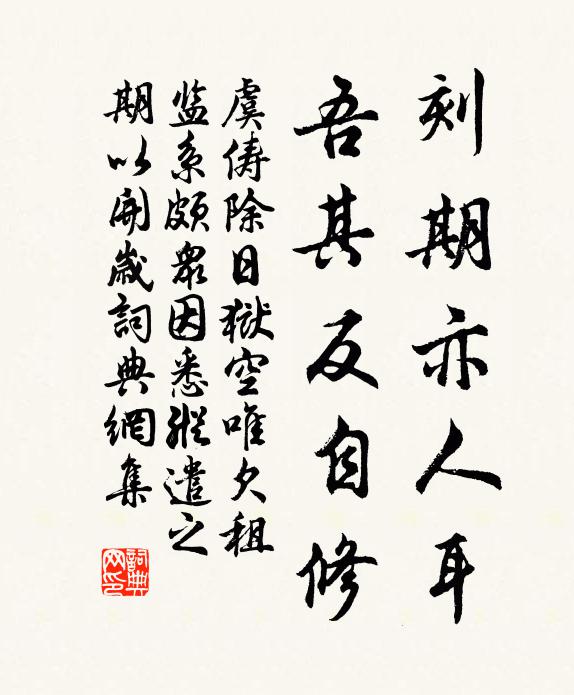 刻期亦人耳
吾其反自修
虞俦除日獄空唯欠租
监系颇眾因悉縱遣之
期以開歲詞典網集
詞典网印